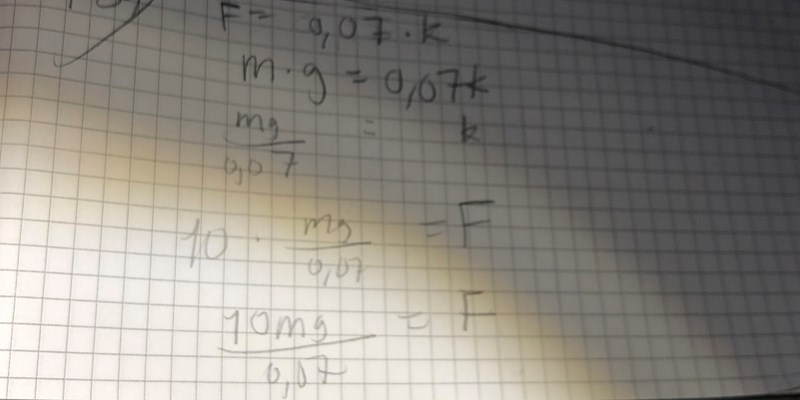 F = 0,07 · k
m · g = 0,07k
mg/0,07 = k
10 · mg/0,07 = F
10mg/0,07 = F